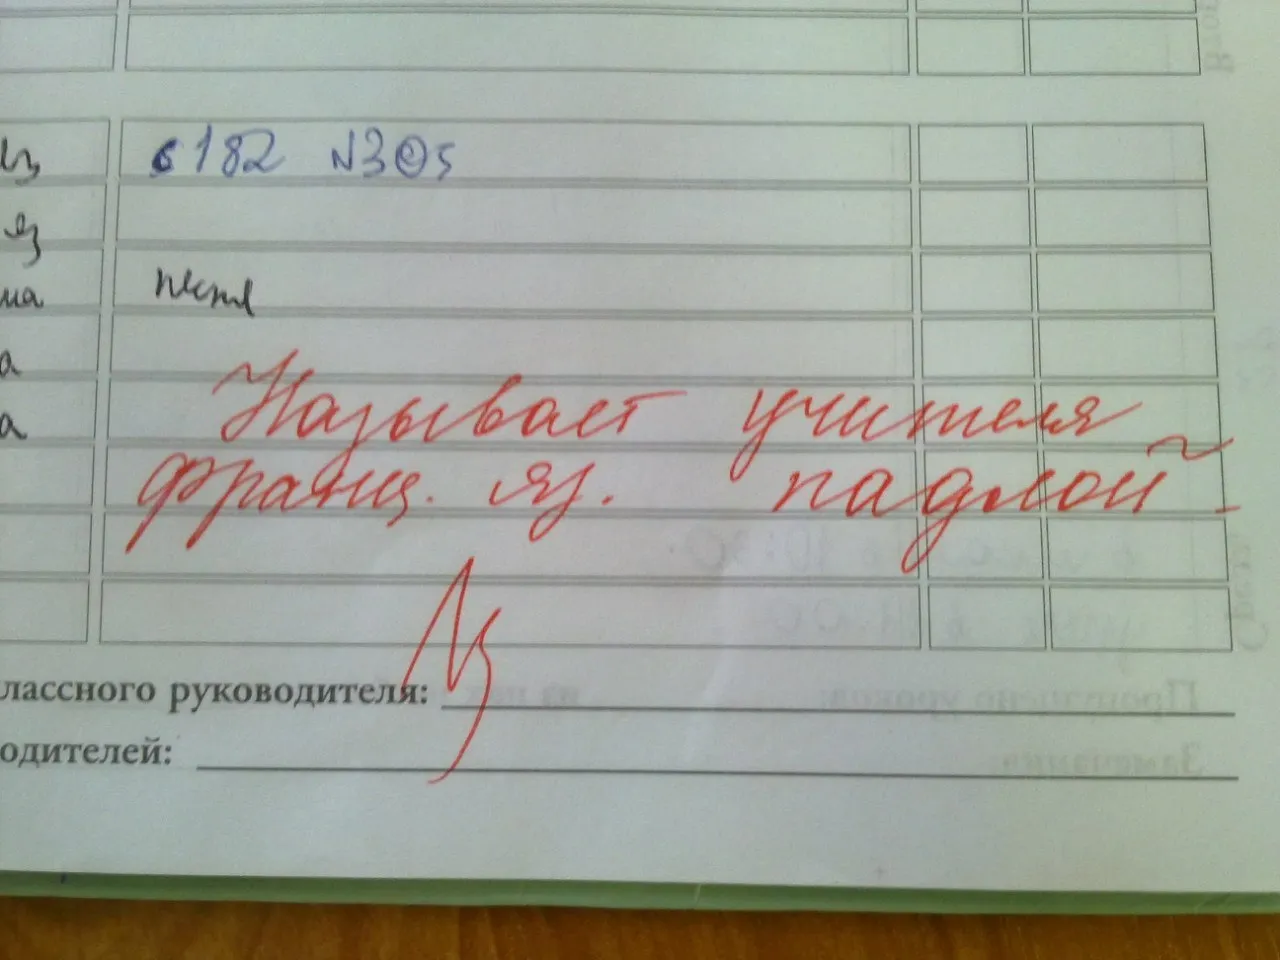 с 182 N305
яз
ма
тетя
а
Называет учителя
а
франц. яз. падлой -
лассного руководителя:
одителей: